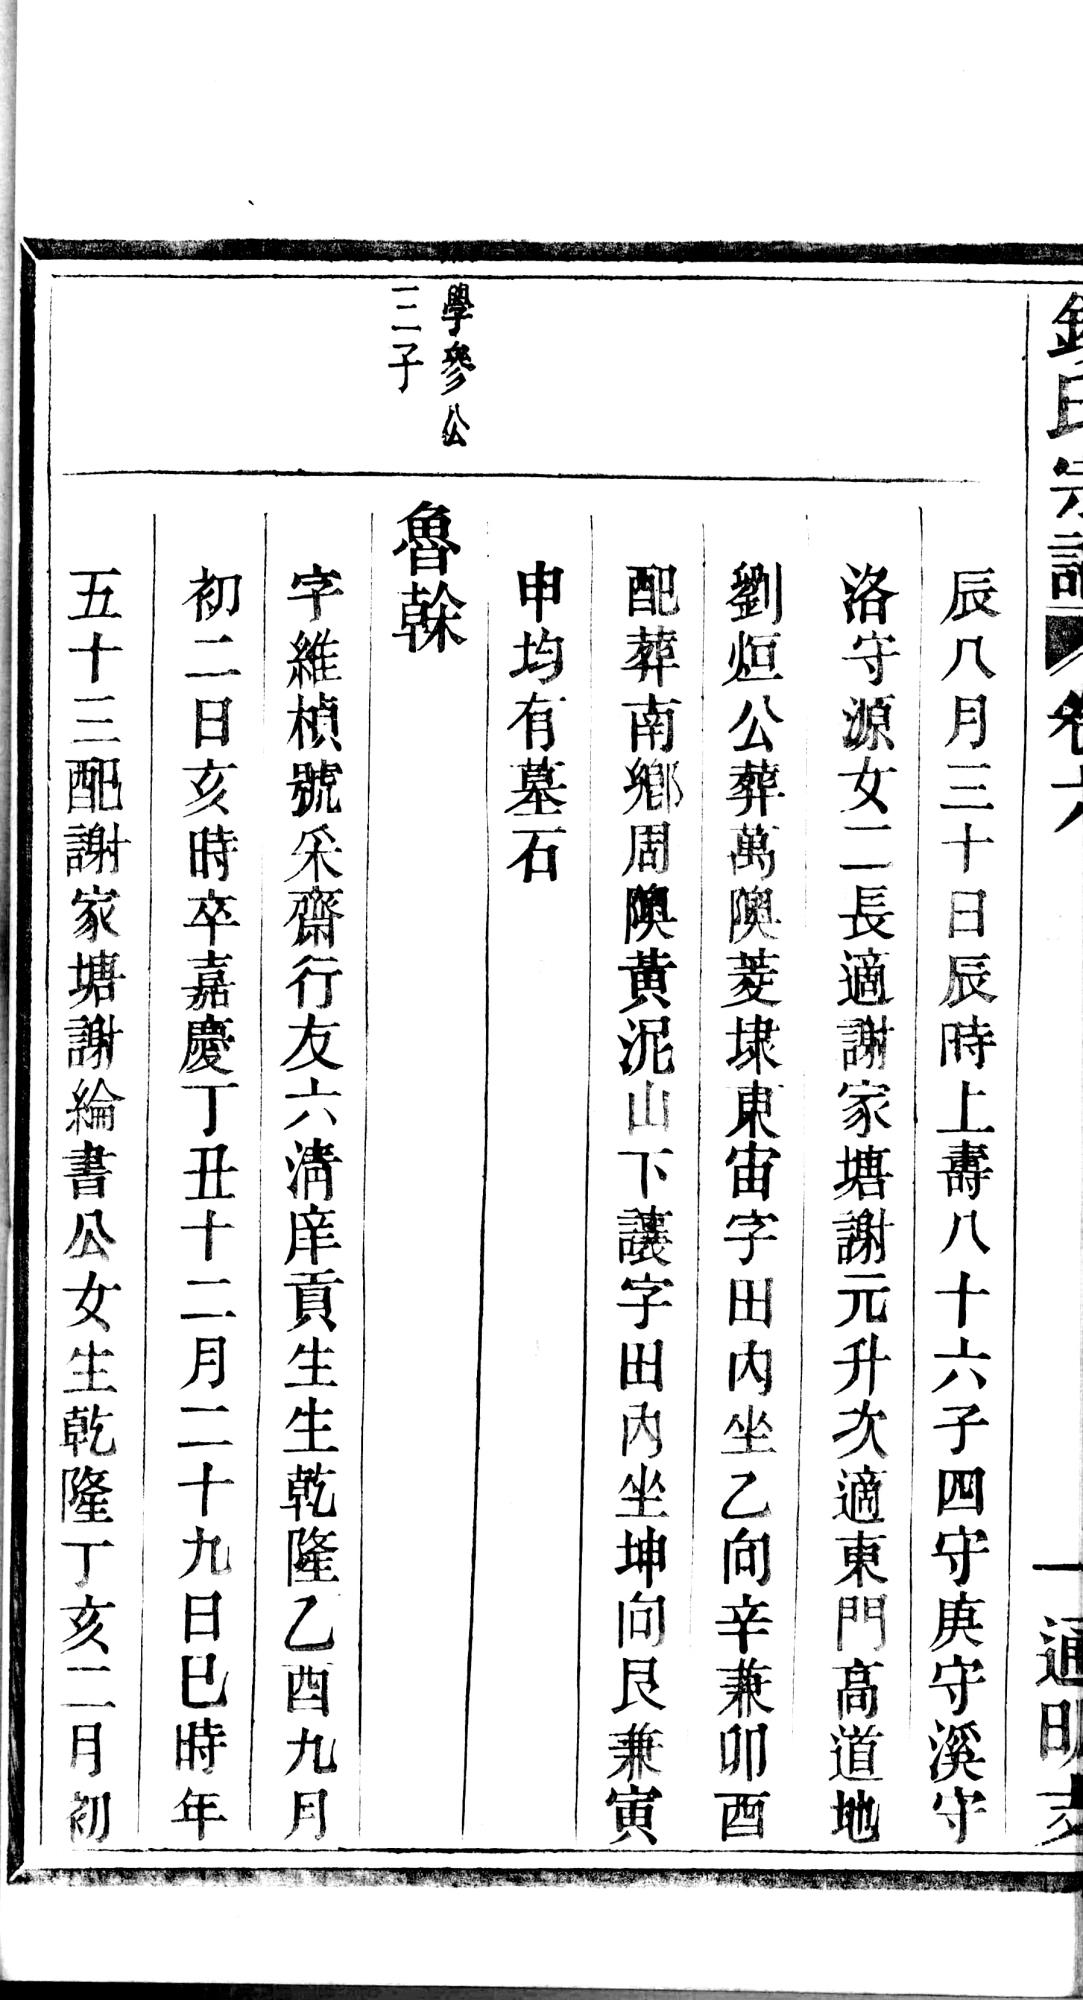 氏宗譜 卷六 一 通明支
辰八月三十日辰時上壽八十六子四守庚守溪守
洛守源女二長適謝家塘謝元升次適東門高道地
劉烜公葬萬隩菱埭東宙字田內坐乙向辛兼卯酉
配葬南鄉周隩黃泥山下讓字田內坐坤向艮兼寅
申均有墓石
學參公
三子
魯榦
字維楨號采齋行友六清庠貢生生乾隆乙酉九月
初二日亥時卒嘉慶丁丑十二月二十九日巳時年
五十三配謝家塘謝綸書公女生乾隆丁亥二月初